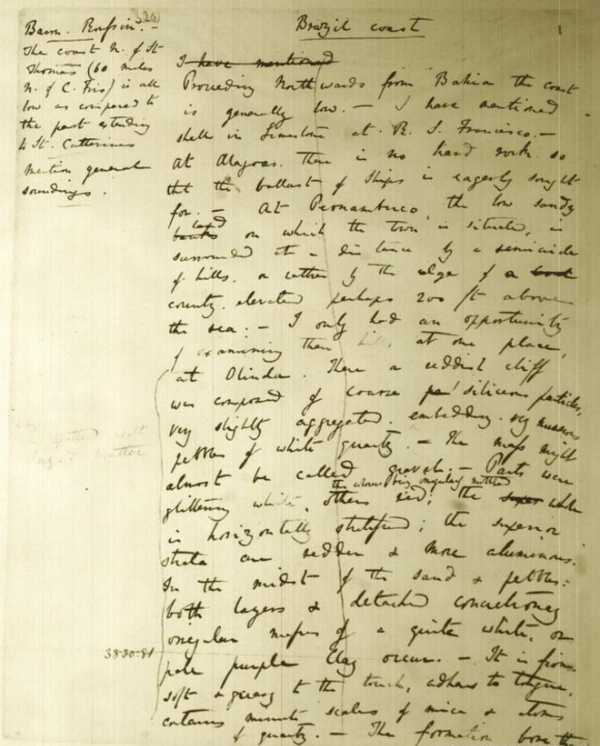 Brazil coast
Baron. Roussin. —
The coast N. of St
Thomas (60 miles
N. of C. Frio) is all
low as compared to
the part extending
to St. Catherines
mention general
soundings.
I have mentioned
Proceeding Northwards from Bahia the coast
is generally low. — I have mentioned
shell in Limestone at R. S. Francisco. —
At Alagoas. There is no hard rock. so
that the ballast of ships is eagerly sought
for. — At Pernambuco, the low sandy
land
banks on which the town is situated, is
surrounded at a distance by a semicircle
of hills. or rather by the edge of a
country. elevated perhaps 200 ft above
the sea. — I only had an opportunity
of examining them at one place,
at Olinda. Here a reddish cliff
was composed of coarse siliceous particles,
very slightly aggregated. embedding very numerous
pebbles of white quartz. — The mass might
almost be called gravel. — Parts were
the whole being irregularly mottled
glittering white, others red; the whole
is horizontally stratified; the superior
strata are redder & more aluminous.
In the midst of the sand & pebbles:
both layers & detached concretionary
irregular masses of a quite white, or
pale purple Clay occur. — It is firm
soft & greasy to the touch, adheres to tongue,
contains minute scales of mica & atoms
of quartz. — The formation bore the